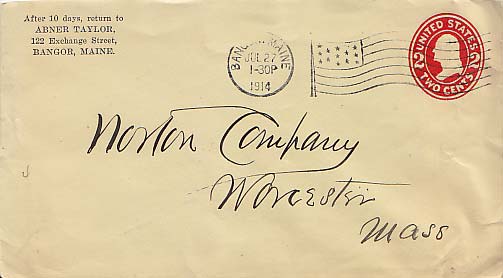 After 10 days, return to
ABNER TAYLOR,
122 Exchange Street,
BANGOR, MAINE.
BANGOR, MAINE
JUL 27
1-30P
1914
UNITED STATES
2 2
TWO CENTS
Norton Company
Worcester
Mass